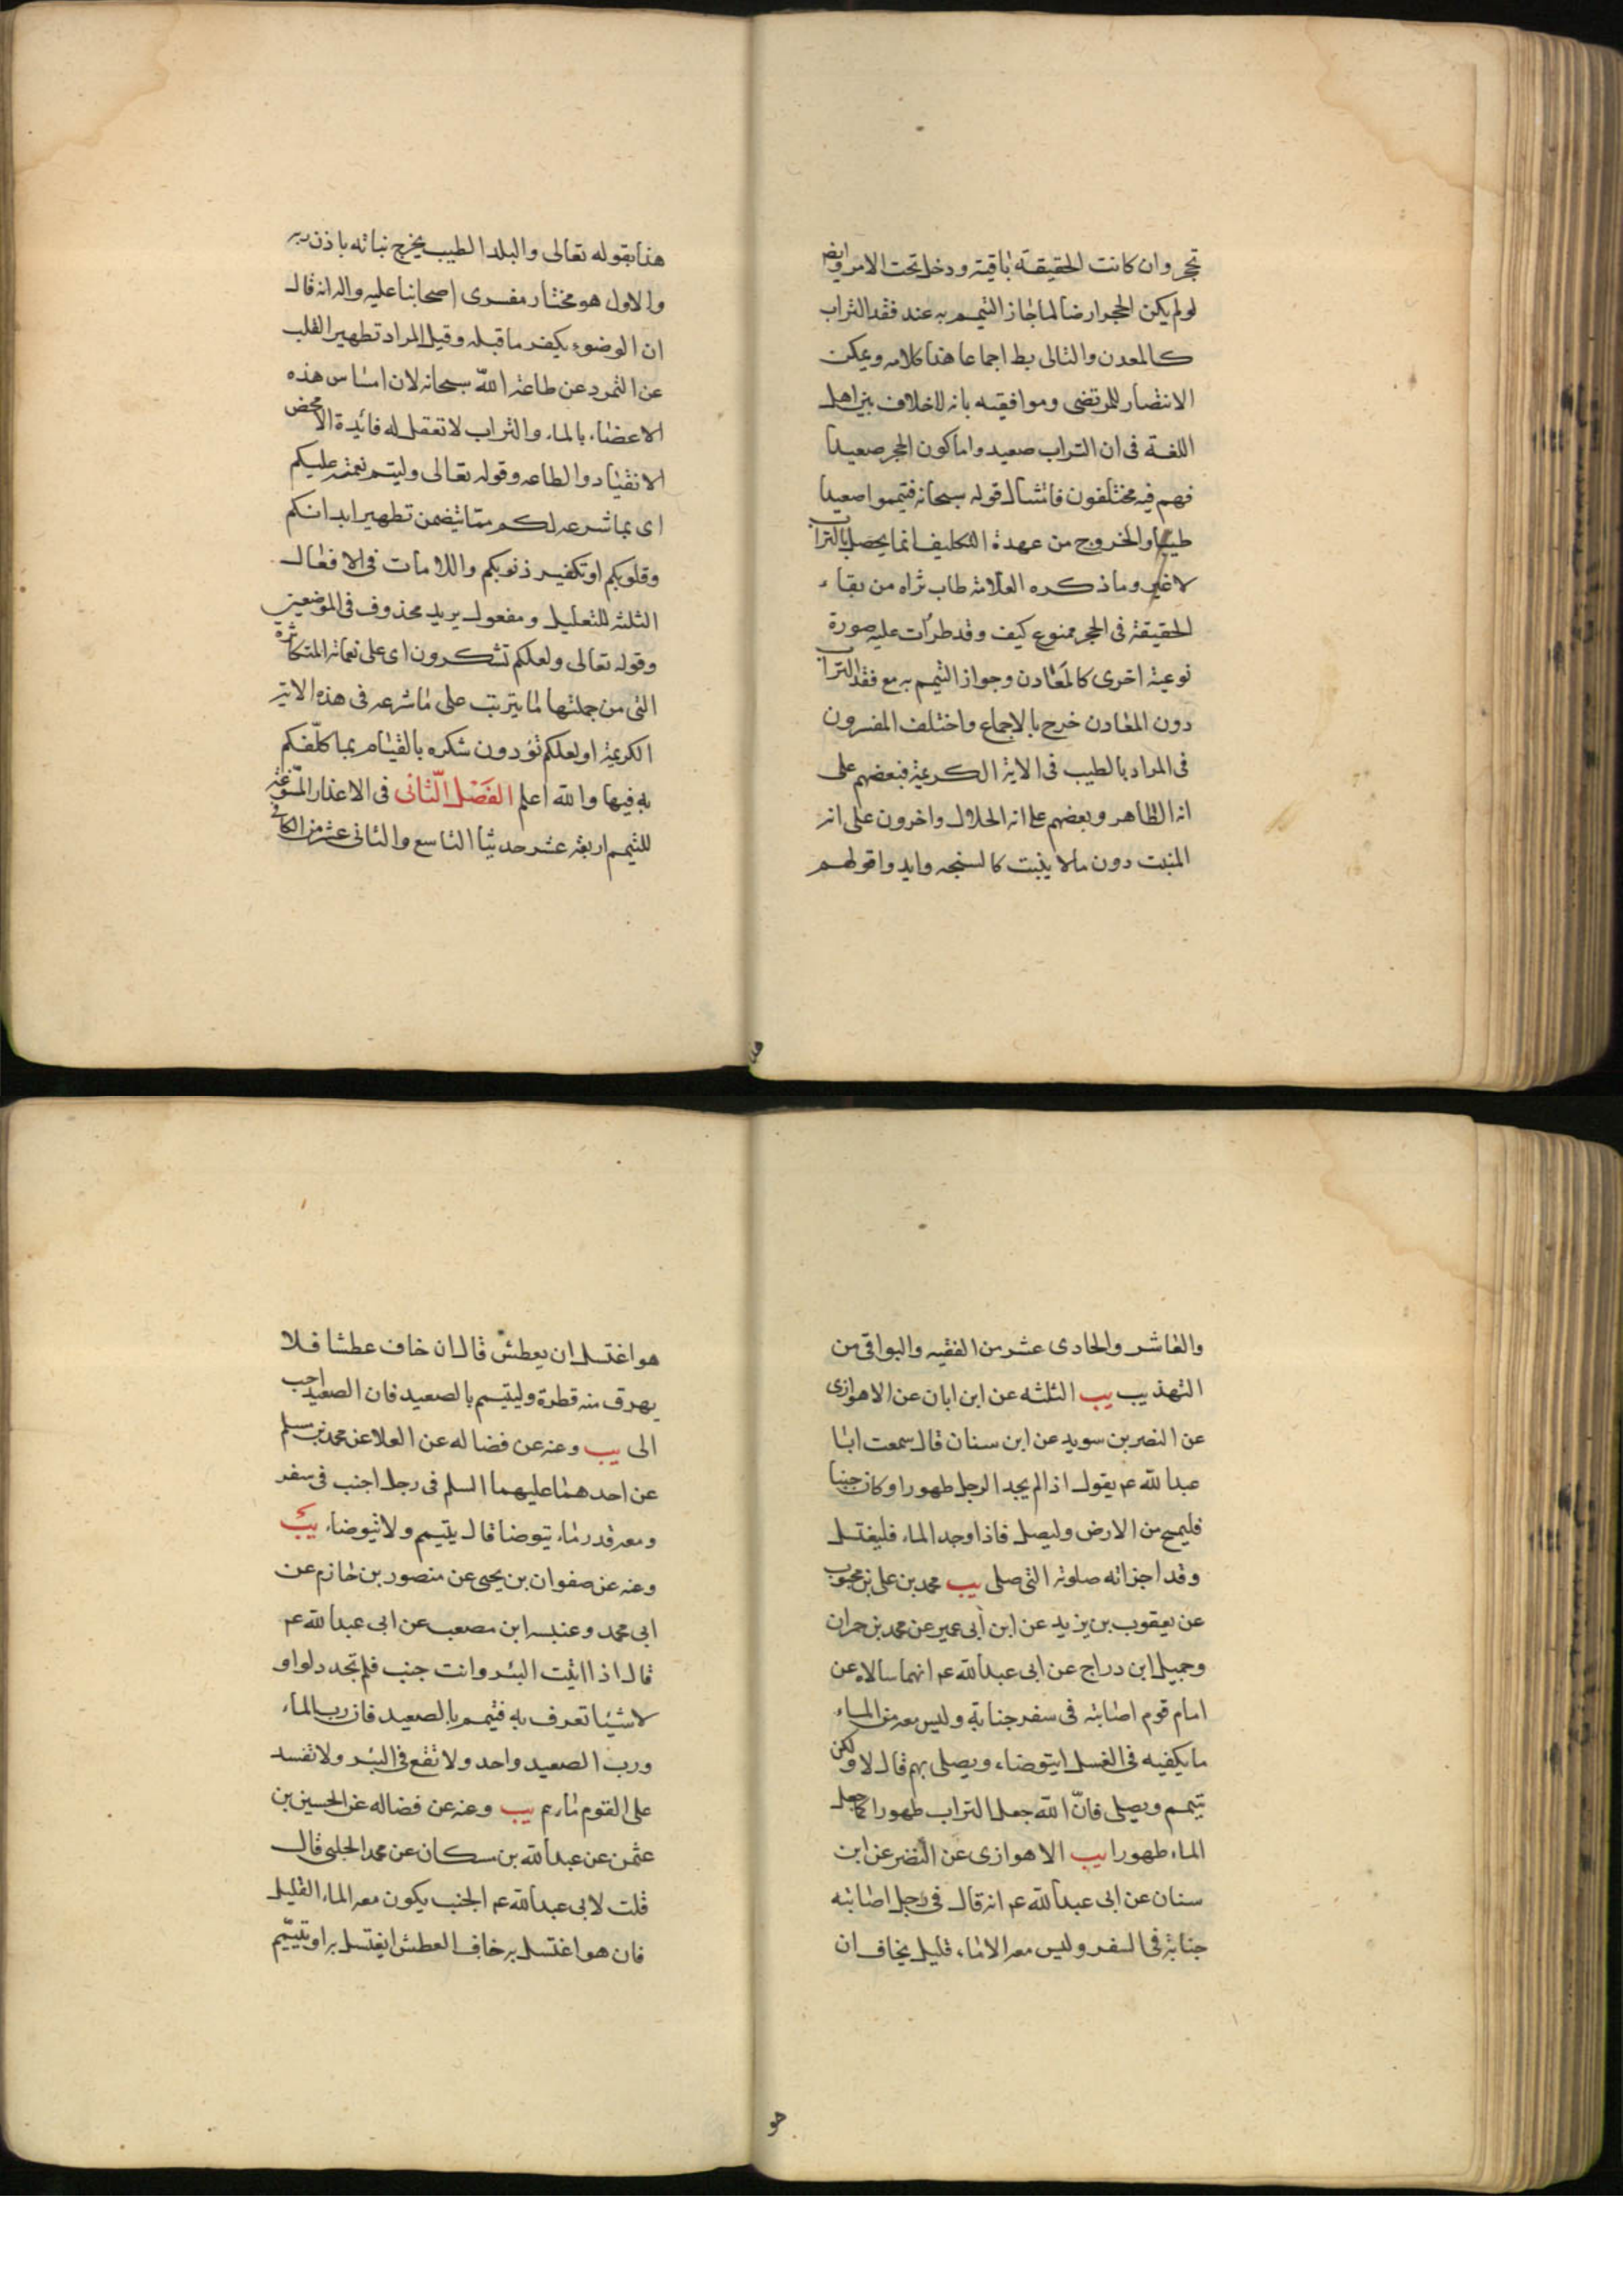 تحجر وان كانت الحقيقة باقية ودخل تحت الامر وايضا
لو لم يكن الحجر ارضا لما جاز التيمم به عند فقد التراب
كالمعدن والتالى بط اجماعا هذا كلامه ويمكن
الانتصار للمرتضى وموافقيه بانه لا خلاف بين اهل
اللغة فى ان التراب صعيد واما كون الحجر صعيدا
فهم فيه مختلفون فامتثال قوله سبحانه فتيمموا صعيدا
طيبا والخروج من عهدة التكليف انما يحصل بالتراب
لا غير وما ذكره العلامة طاب ثراه من بقاء
الحقيقة فى الحجر ممنوع كيف وقد طرأت عليه صورة
نوعية اخرى كالمعادن وجواز التيمم به مع فقد التراب
دون المعادن خرج بالاجماع واختلف المفسرون
فى المراد بالطيب فى الاية الكريمة فبعضهم على
انه الطاهر وبعضهم على انه الحلال واخرون على انه
المنبت دون مالا ينبت كالسبخه وايدوا قولهم
هذا بقوله تعالى والبلد الطيب يخرج نباته باذن ربه
والاول هو مختار مفسرى اصحابنا عليه واله انه قال
ان الوضوء يكفر ما قبله وقيل المراد تطهير القلب
عن التمرد عن طاعة الله سبحانه لان امساس هذه
الاعضاء بالماء والتراب لا تعقل له فائدة الا محض
الانقياد والطاعه وقوله تعالى وليتم نعمته عليكم
اى بما شرعه لكم مما يتضمن تطهير ابدانكم
وقلوبكم او تكفير ذنوبكم واللامات فى الافعال
الثلثه للتعليل ومفعول يريد محذوف فى الموضعين
وقوله تعالى ولعلكم تشكرون اى على نعمائه المتكاثرة
التى من جملتها لما يترتب على ما شرعه فى هذه الاية
الكريمة او لعلكم تؤدون شكره بالقيام بما كلّفكم
به فيها والله اعلم الفصل الثانى فى الاعذار المسوّغة
للتيمم اربعة عشر حديثا التاسع والثانى عشر من الكافى
والعاشر والحادى عشر من الفقيه والبواقى من
التهذيب يب الثلثه عن ابن ابان عن الاهوازى
عن النضر بن سويد عن ابن سنان قال سمعت ابا
عبد الله عم يقول اذا لم يجد الرجل طهورا وكان جنبا
فليمسح من الارض وليصل فاذا وجد الماء فليغتسل
وقد اجزاته صلوته التى صلى يب محمد بن على بن محبوب
عن يعقوب بن يزيد عن ابن أبى عمير عن محمد بن حمران
وجميل ابن دراج عن ابى عبد الله عم انهما سالاه عن
امام قوم اصابته فى سفر جنابة وليس معه من الماء
ما يكفيه فى الغسل ايتوضاء ويصلى بهم قال لا ولكن
تيمم ويصلى فانّ الله جعل التراب طهورا كما جعل
الماء طهورا يب الاهوازى عن النضر عن ابن
سنان عن ابى عبد الله عم انه قال فى رجل اصابته
جنابة فى السفر وليس معه الا ماء قليل يخاف ان
هو اغتسل ان يعطش قال ان خاف عطشا فلا
يهرق منه قطرة وليتيمم بالصعيد فان الصعيد احب
الى يب وعنه عن فضاله عن العلا عن محمد بن مسلم
عن احدهما عليهما السلم فى رجل اجنب فى سفر
ومعه قدر ماء يتوضا قال يتيمم ولا يتوضاء يب
وعنه عن صفوان بن يحيى عن منصور بن حازم عن
ابى محمد وعنبسه ابن مصعب عن ابى عبد الله عم
قال اذا اتيت البئر وانت جنب فلم تجد دلوا و
لا شيئا تعرف به فتيمم بالصعيد فان رب الماء
ورب الصعيد واحد ولا تقع فى البئر ولا تفسد
على القوم ماءهم يب وعنه عن فضاله عن الحسين بن
عثمن عن عبد الله بن مسكان عن محمد الحلبى قال
قلت لابى عبد الله عم الجنب يكون معه الماء القليل
فان هو اغتسل به خاف العطش ايغتسل به او يتيمّم
هو